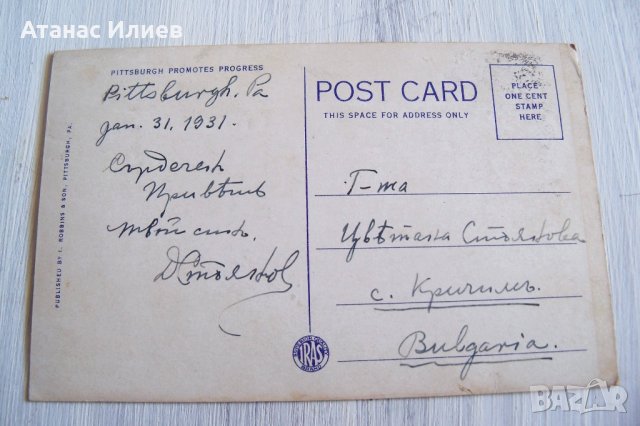 Атанас Илиев
PITTSBURGH PROMOTES PROGRESS
Pittsburgh, Pa
Jan. 31, 1931.
Сърдеченъ
Привѣтъ
твой синъ.
ДСтояновъ
PUBLISHED BY I. ROBBINS & SON, PITTSBURGH, PA.
POST CARD
THIS SPACE FOR ADDRESS ONLY
PLACE
ONE CENT
STAMP
HERE
Г-жа
Цвѣтана Стоянова
с. Кричимъ.
Bulgaria.
IRAS
BAZAR